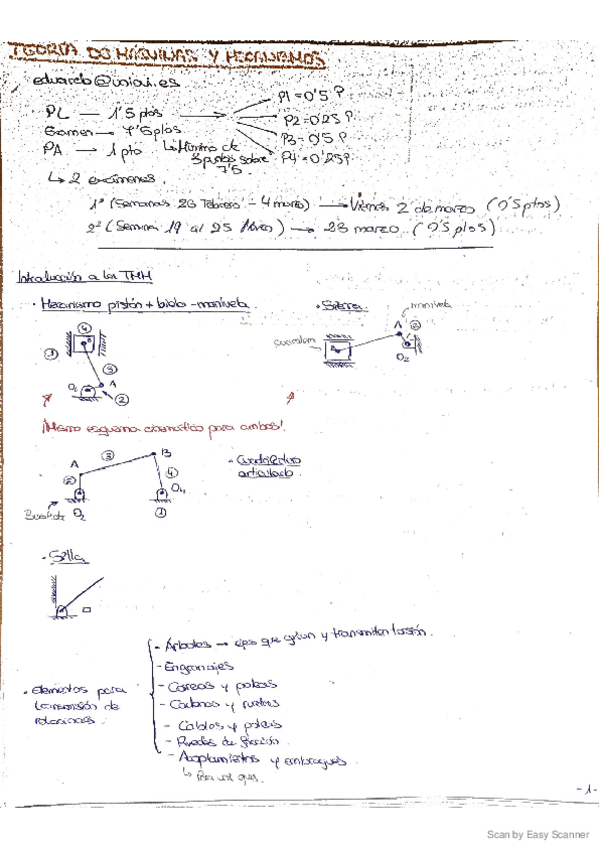 TEORÍA DE MÁQUINAS Y MECANISMOS
PL — 1'5 ptos
P1 = 0'5 P
P2 = 0'25 P
P3 = 0'5 P
P4 = 0'25 P
Examen → 7'5 ptos
PA — 1 pto
↳ Mínimo de 3 puntos sobre 7'5
↳ 2 exámenes
1º (Semanas 26 Febrero - 4 marzo) → Viernes 2 de marzo (0'5 ptos)
2º (Semana 19 al 25 ) → 23 marzo (0'5 ptos)
Introducción a la TMM
· Mecanismo pistón + biela - manivela
· Sierra
manivela
4
B
1
3
A
O2
2
A
2
O2
¡Mismo esquema cinemático para ambos!
3
B
A
2
4
O4
O2
1
- Cuadrilátero articulado
· Silla
· Elementos para transmisión de rotaciones
- Árboles → ejes que giran y transmiten torsión.
- Engranajes
- Correas y poleas
- Cadenas y ruedas
- Cables y poleas
- Ruedas de fricción
- Acoplamientos y embragues
- 1 -
Scan by Easy Scanner